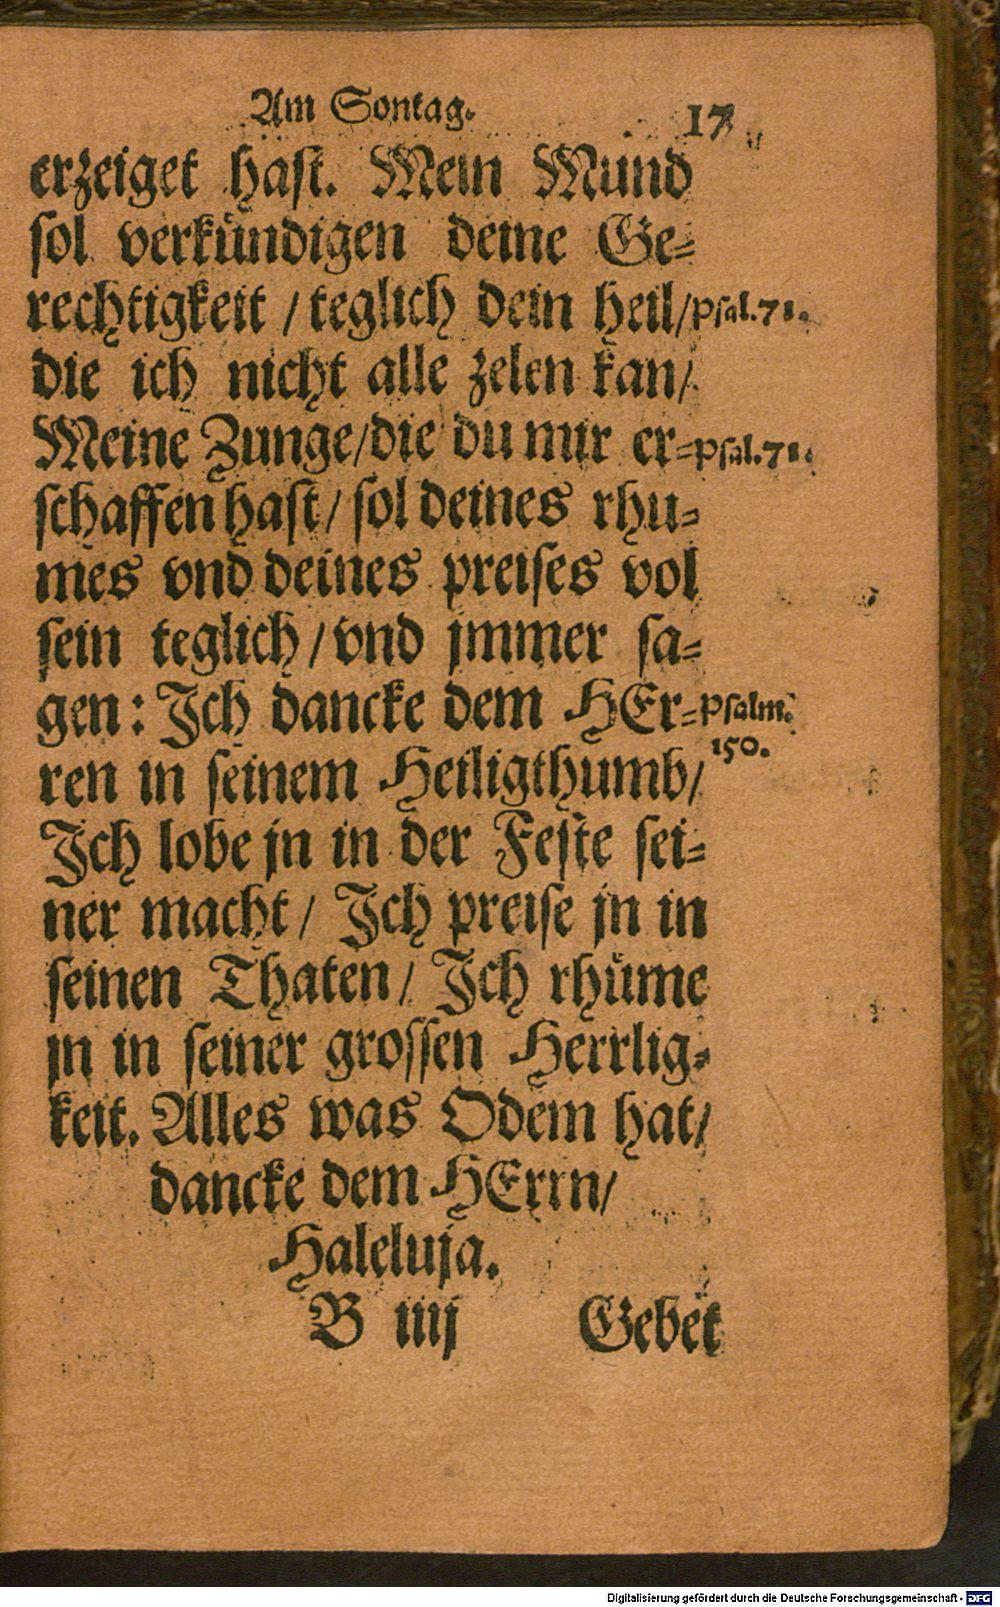 Am Sontag. 17
erzeiget hast. Mein Mund
sol verkündigen deine Ge-
rechtigkeit / teglich dein heil / Psal. 71.
die ich nicht alle zelen kan /
Meine Zunge / die du mir er- Psal. 71.
schaffen hast / sol deines rhu-
mes vnd deines preises vol
sein teglich / vnd jmmer sa-
gen: Ich dancke dem HEr- Psalm.
150.
ren in seinem Heiligthumb /
Ich lobe jn in der Feste sei-
ner macht / Ich preise jn in
seinen Thaten / Ich rhüme
jn in seiner grossen Herrlig-
keit. Alles was Odem hat /
dancke dem HErrn /
Haleluja.
B iiij Gebet
Digitalisierung gefördert durch die Deutsche Forschungsgemeinschaft - DFG